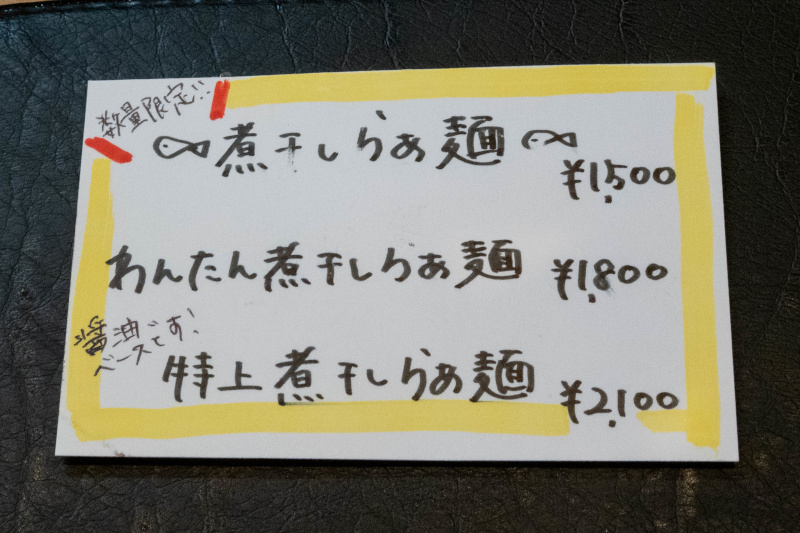 数量限定!!
煮干しらぁ麺
¥1,500
わんたん煮干しらぁ麺 ¥1,800
醤油
ベースです!
特上煮干しらぁ麺 ¥2,100